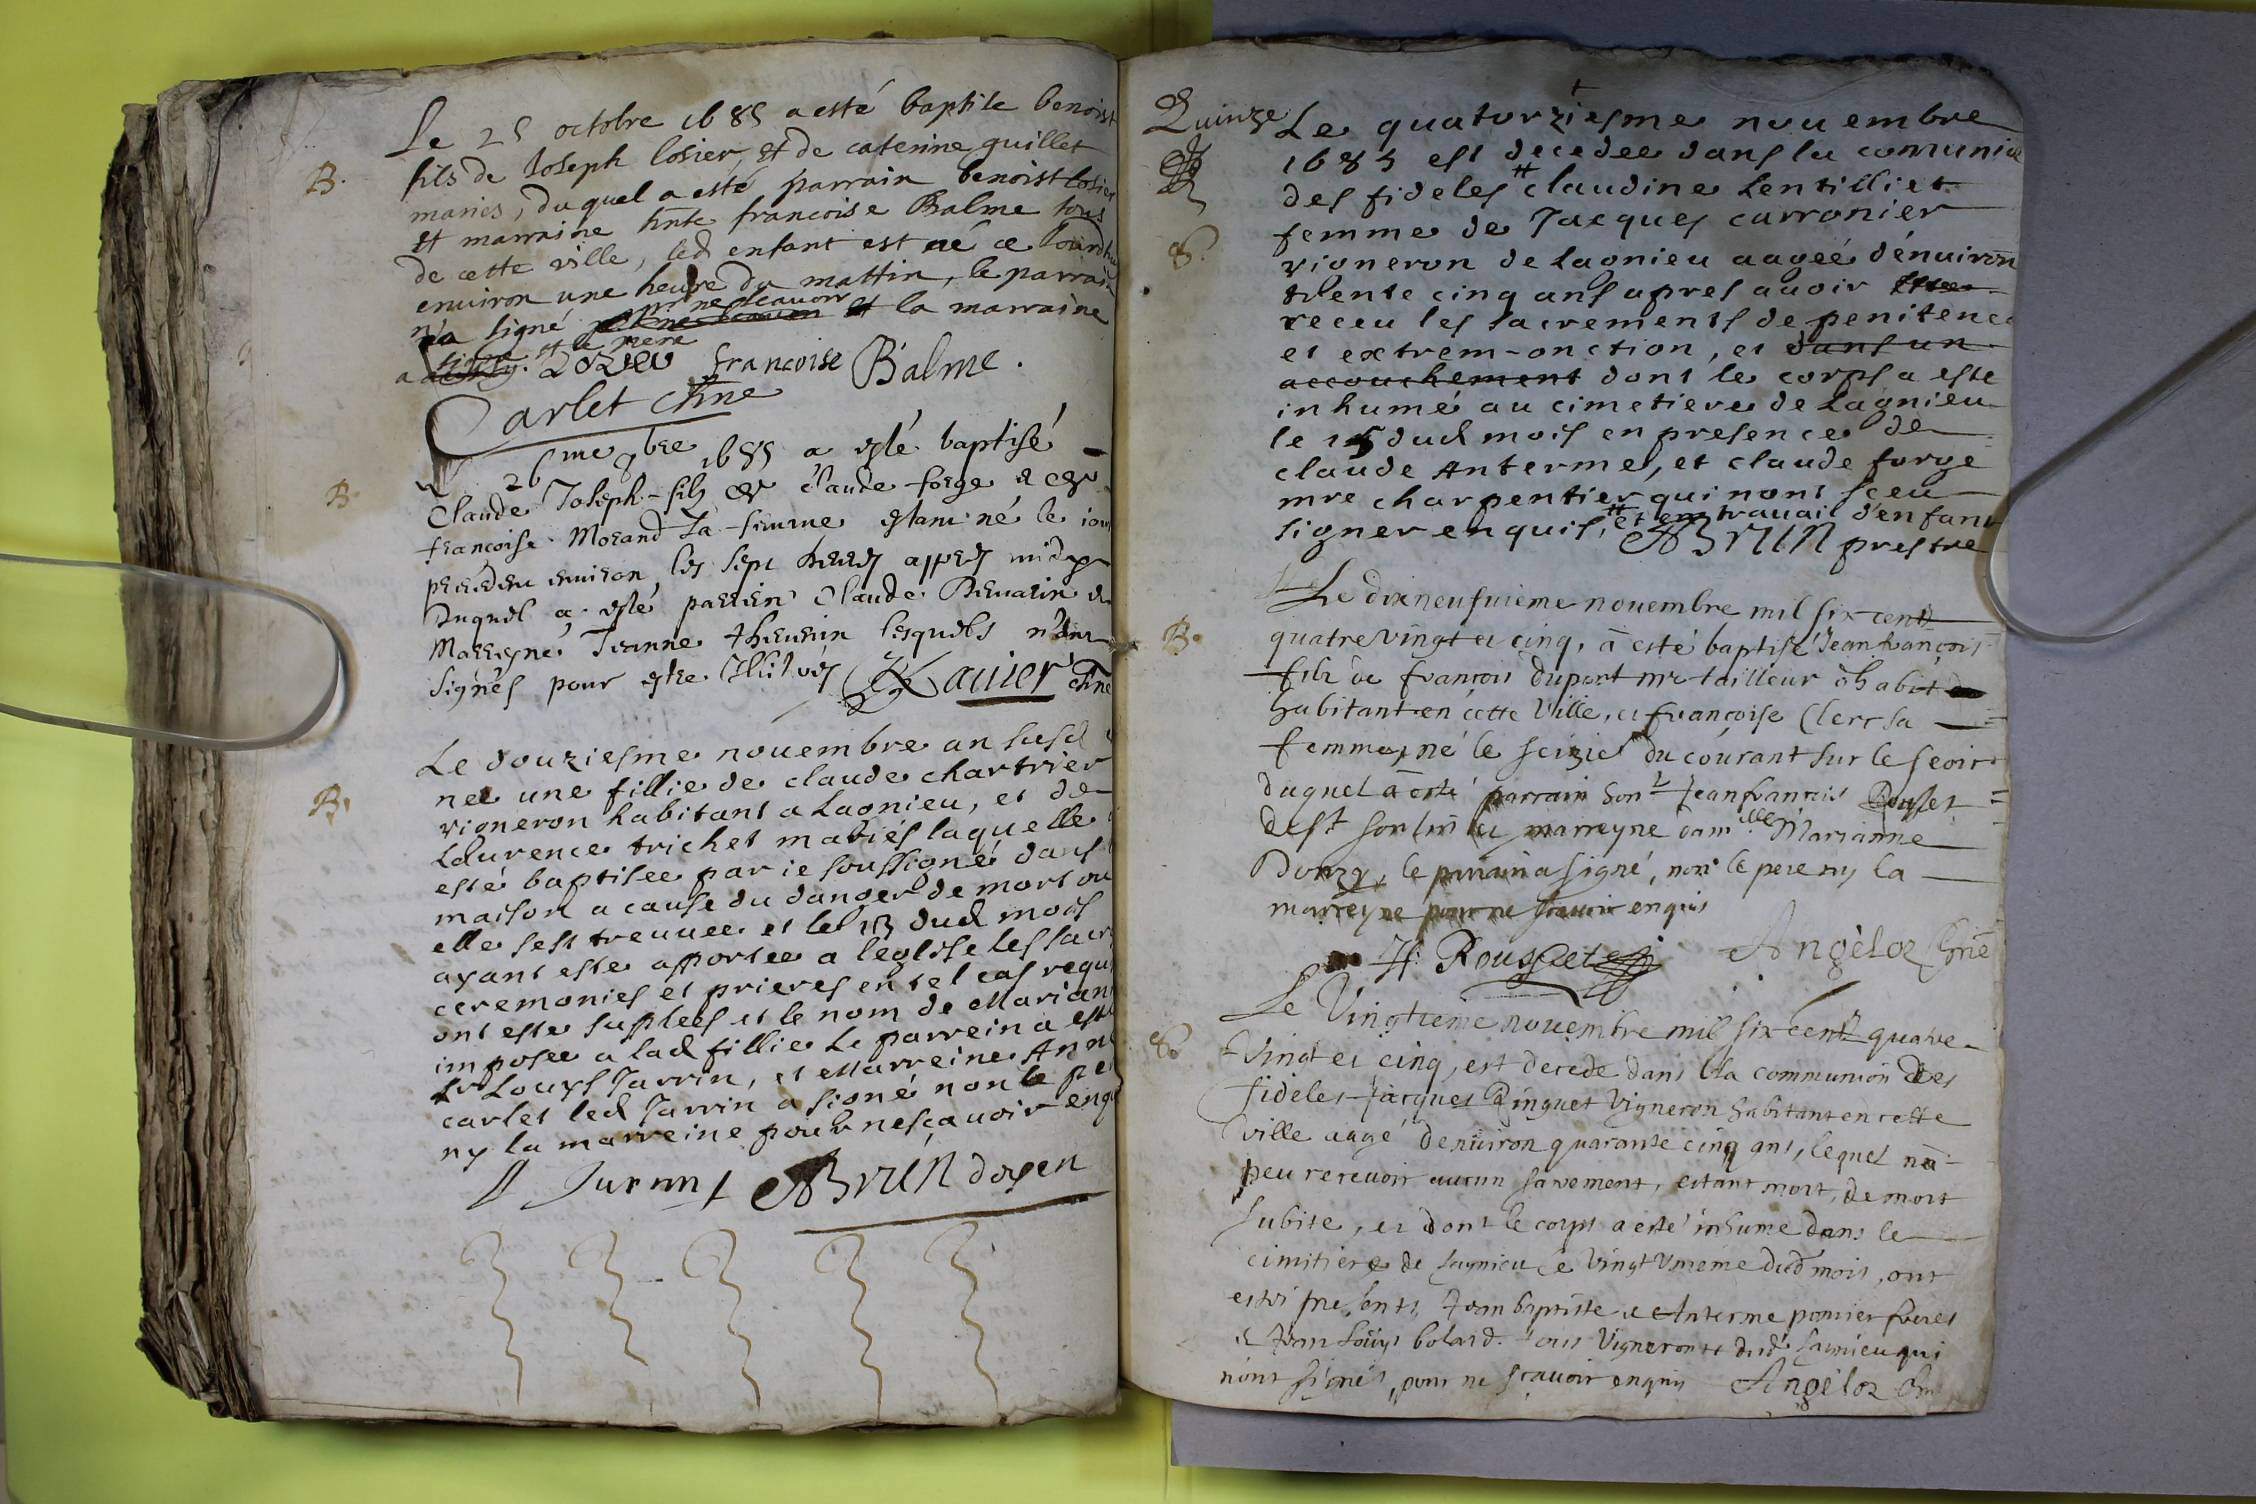 Le 25 octobre 1685 a esté baptise benoist
B.
fils de Joseph losier, et de caterine guillet
maries, du quel a esté parrain benoist losier
et marraine hnte francoise Balme tous
de cette ville, led enfant est né ce Jourdhuy
environ une heure du mattin, le parrain
n'a signé pour ne scavoir et la marraine
a signé et le pere
Lozier francoise Balme.
Carlet chne
Le 26me 8bre 1685 a esté baptisé
B.
Claude Joseph fils de claude forge et de
francoise Morand sa femme estant né le iour
precedent environ les sept heures apres midy
Duquel a esté parrein Claude
Marreyne Jeanne thevenin lesquels n'ont
signés pour estre Illiterés Lauier chne
B.
Le douziesme nouembre an susd
nee une fillie de claude chartrier
vigneron habitant a Lagnieu, et de
Laurence trichet mariés laquelle
esté baptisee par ie soussigné dans
maison a cause du danger de mort ou
elle sest treuuee et le 13 dud mois
ayant este apportee a leglise les sacr
ceremonies et prieres en tel cas requi
ont este suplees et le nom de Mariann
imposee a lad fillie Le parrein a esté
Sr Louys Jarrin, et Marreine Anne
carlet led Jarrin a signé non le pe
ny la marreine pour nesçauoir enqu
Jarrin ABrun doyen
Quinze
Le quatorziesme nouembre
1685 est decedee dans la comunion
des fideles # claudine Lentilliet
femme de Jacques carronier
S.
vigneron de Lagnieu aageé dénuiron
trente cinq ans apres auoir
receu les sacrements de penitence
et extrem-onction, et dans un
accouchement dont le corps a este
inhumé au cimetiere de Lagnieu
le 15 dud mois en presence de
claude Anterme, et claude forge
mre charpentier qui nont sceu
signer enquis, # et en trauail d'enfant
ABrun prestre
Le dixneufuieme nouembre mil six cent
B.
quatre vingt et cinq, a esté baptisé Jean françois
fils de françois dupont mre tailleur d'habit
habitant en cette Ville, et françoise Clerc sa
femme, né le seizie du courant sur le seoir
duquel a esté parrain honr Jean francois Rousset
dest Sorlin et marreyne damlle Marianne
Donzy, le parrain a signé, non le pere ny la
marreyne pour ne scauoir enquis
Jf Rousset Angèloz chne
Le Vingtieme nouembre mil six cent quatre
S.
Vingt et cinq, est decede dans la communion des
fideles Jacques Pinguet Vigneron habitant en cette
ville aagé denuiron quarante cinq ans, lequel n'a
peu receuoir aucun sacrement, estant mort, de mort
subite, et dont le corps a esté inhume dans le
cimitiere de Lagnieu le vingt Unieme dud mois, ont
estés presents, Jean baptiste et Anterme pomier freres
et Jean Loüys bolard tous Vignerons dud Lagnieu qui
n'ont signés, pour ne sçauoir enquis Angèloz chne